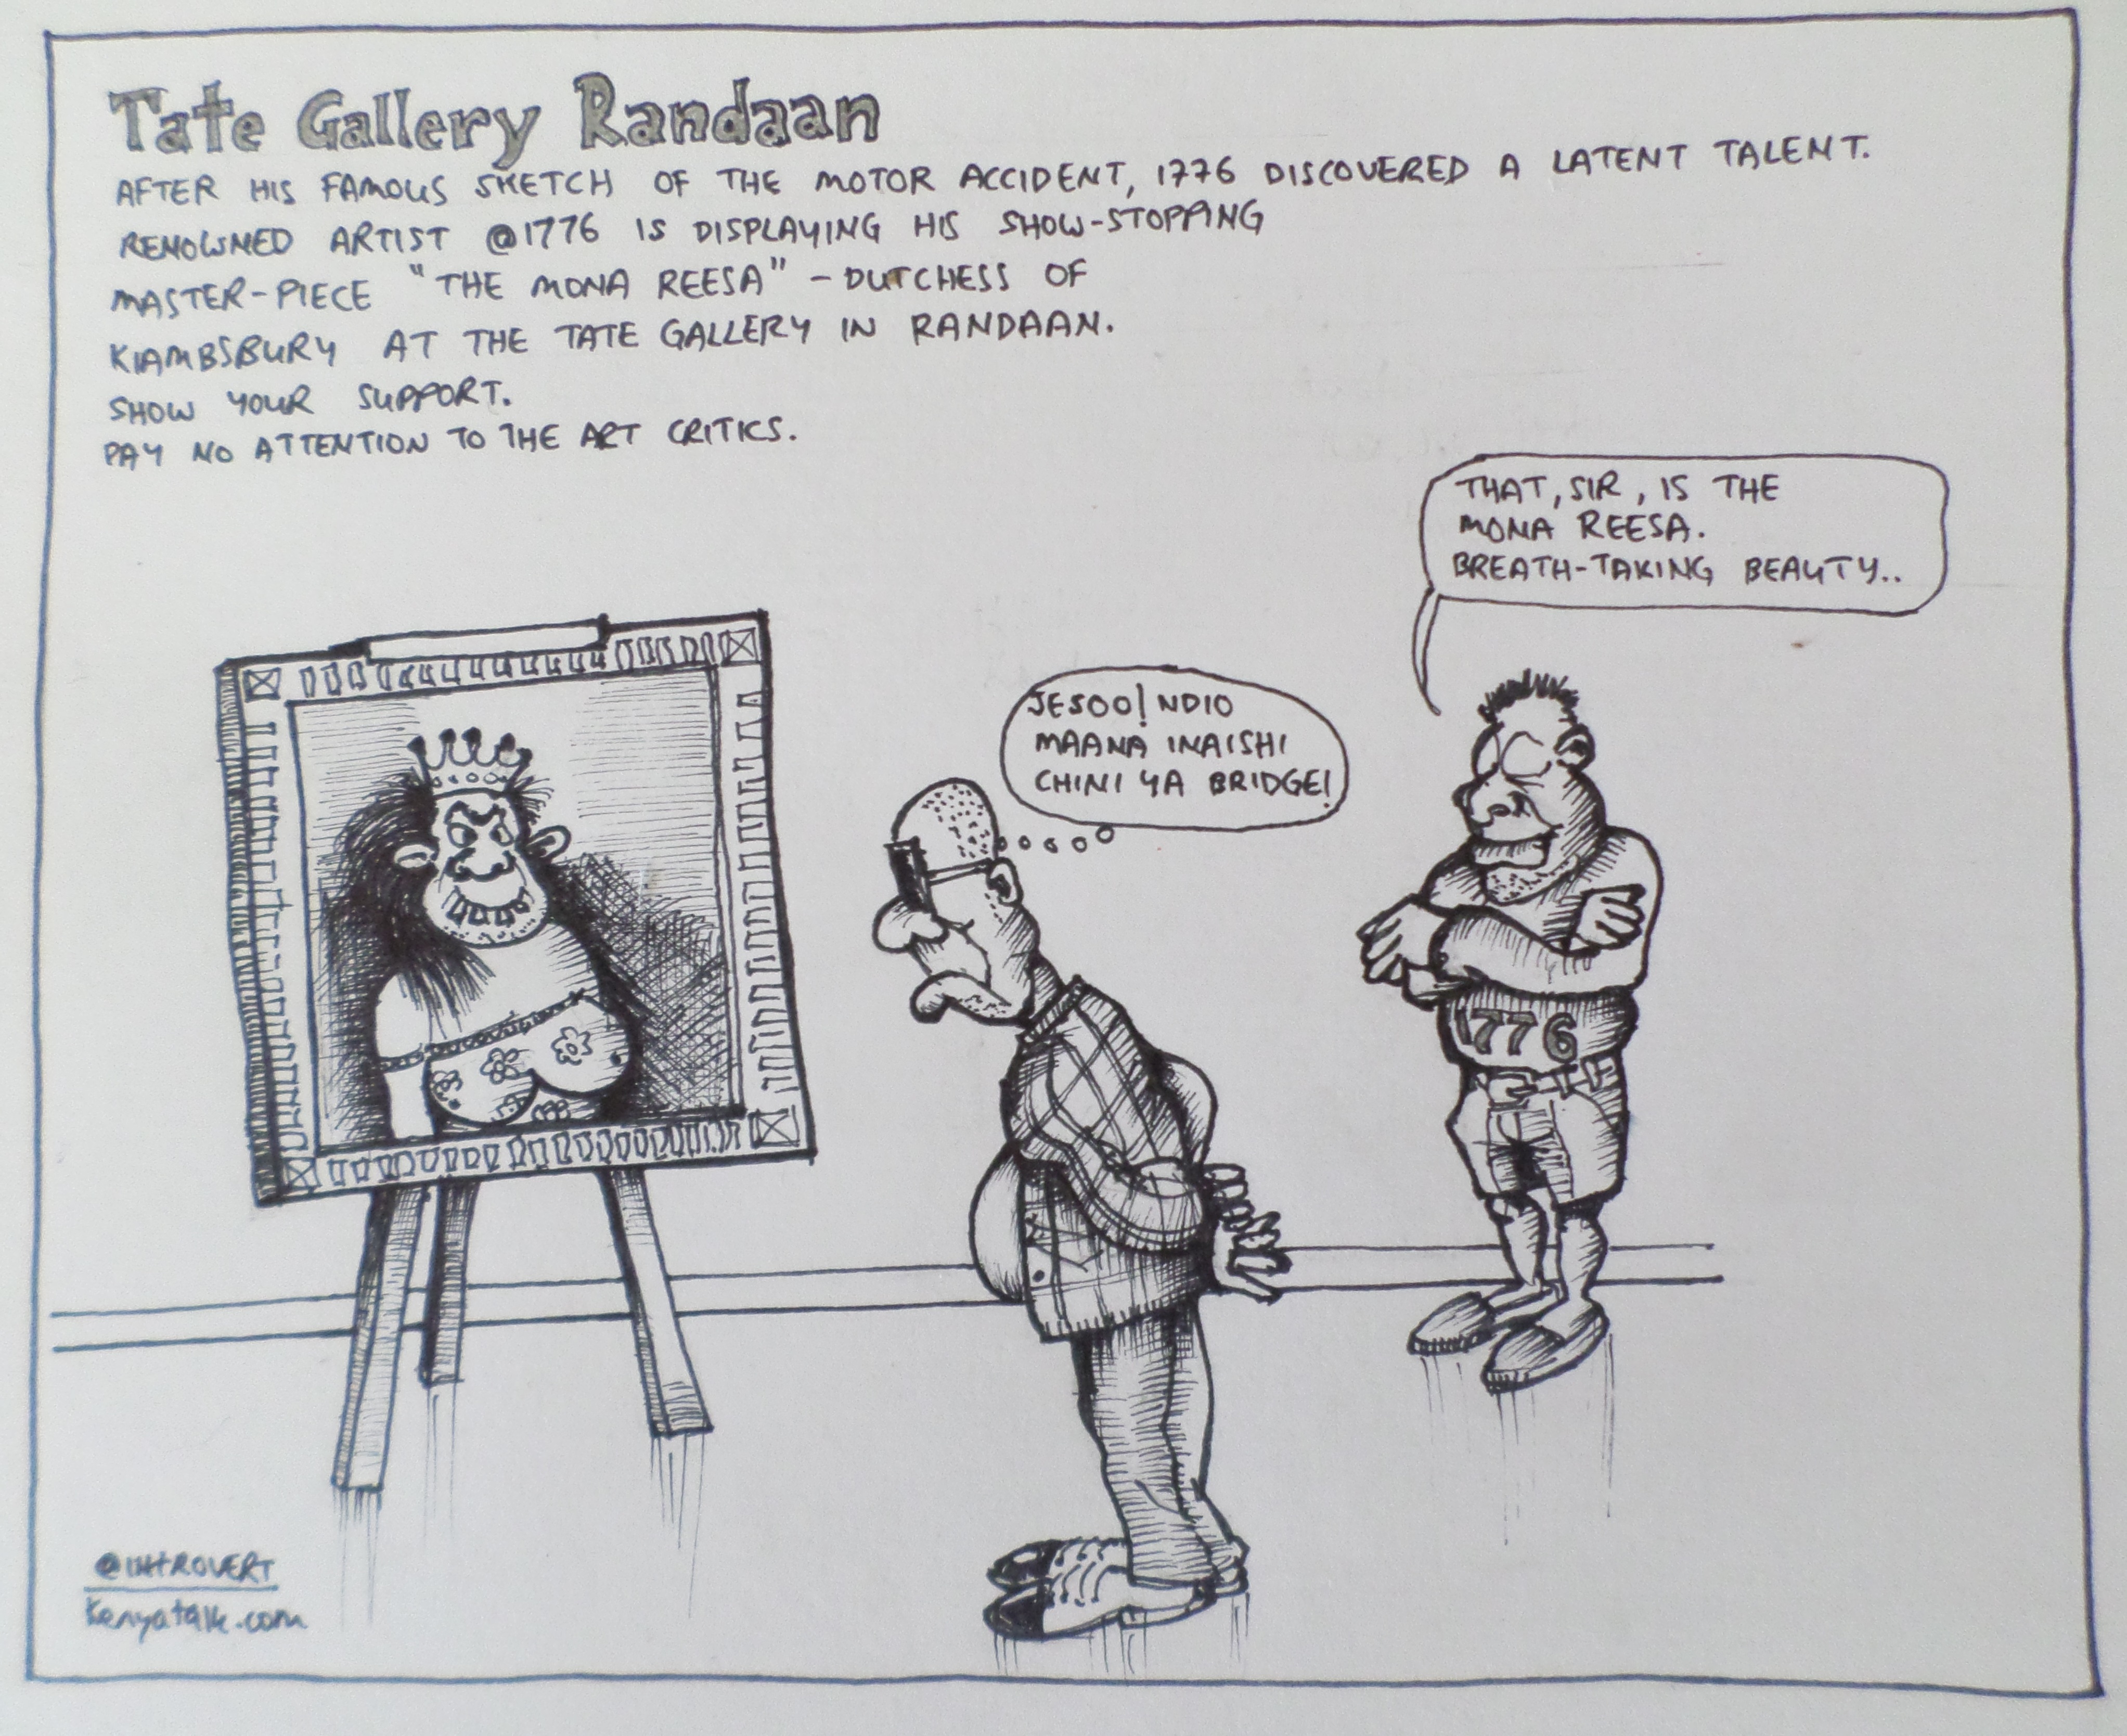 Tate Gallery Randaan
AFTER HIS FAMOUS SKETCH OF THE MOTOR ACCIDENT, 1776 DISCOVERED A LATENT TALENT.
RENOWNED ARTIST @1776 IS DISPLAYING HIS SHOW-STOPPING
MASTER-PIECE "THE MONA REESA" - DUTCHESS OF
KIAMBSBURY AT THE TATE GALLERY IN RANDAAN.
SHOW YOUR SUPPORT.
PAY NO ATTENTION TO THE ART CRITICS.
THAT, SIR, IS THE
MONA REESA.
BREATH-TAKING BEAUTY..
JESOO! NDIO
MAANA INAISHI
CHINI YA BRIDGE!
1776
@INTROVERT
Kenyatalk.com